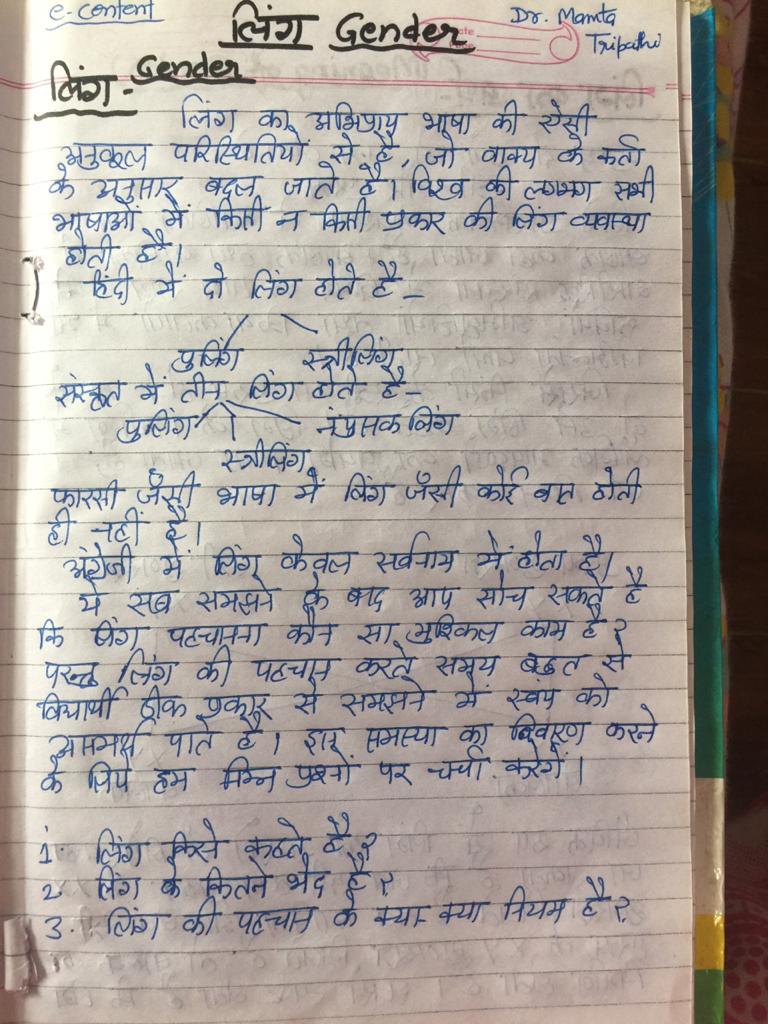 e-content
लिंग Gender
Dr. Mamta
Tripathi
लिंग - Gender
लिंग का अभिप्राय भाषा की ऐसी
अनुकूल परिस्थितियों से है, जो वाक्य के कर्ता
के अनुसार बदल जाते है। विश्व की लगभग सभी
भाषाओं में किसी न किसी प्रकार की लिंग व्यवस्था
होती है।
हिंदी में दो लिंग होते है -
पुलिंग स्त्रीलिंग
संस्कृत में तीन लिंग होते है -
पुलिंग नंपुसक लिंग
स्त्रीलिंग
फारसी जैसी भाषा में लिंग जैसी कोई बात होती
ही नहीं है।
अंग्रेजी में लिंग केवल सर्वनाम में होता है।
ये सब समझने के बाद आप सोच सकते है
कि लिंग पहचानना कौन सा मुश्किल काम है?
परन्तु लिंग की पहचान करते समय बहुत से
विद्यार्थी ठीक प्रकार से समझने में स्वंय को
असमर्थ पाते है। इस समस्या का निवारण करने
के लिये हम निम्न प्रश्नों पर चर्चा करेगें।
1. लिंग किसे कहते है?
2 लिंग के कितने भेद है?
3. लिंग की पहचान के क्या क्या नियम है?